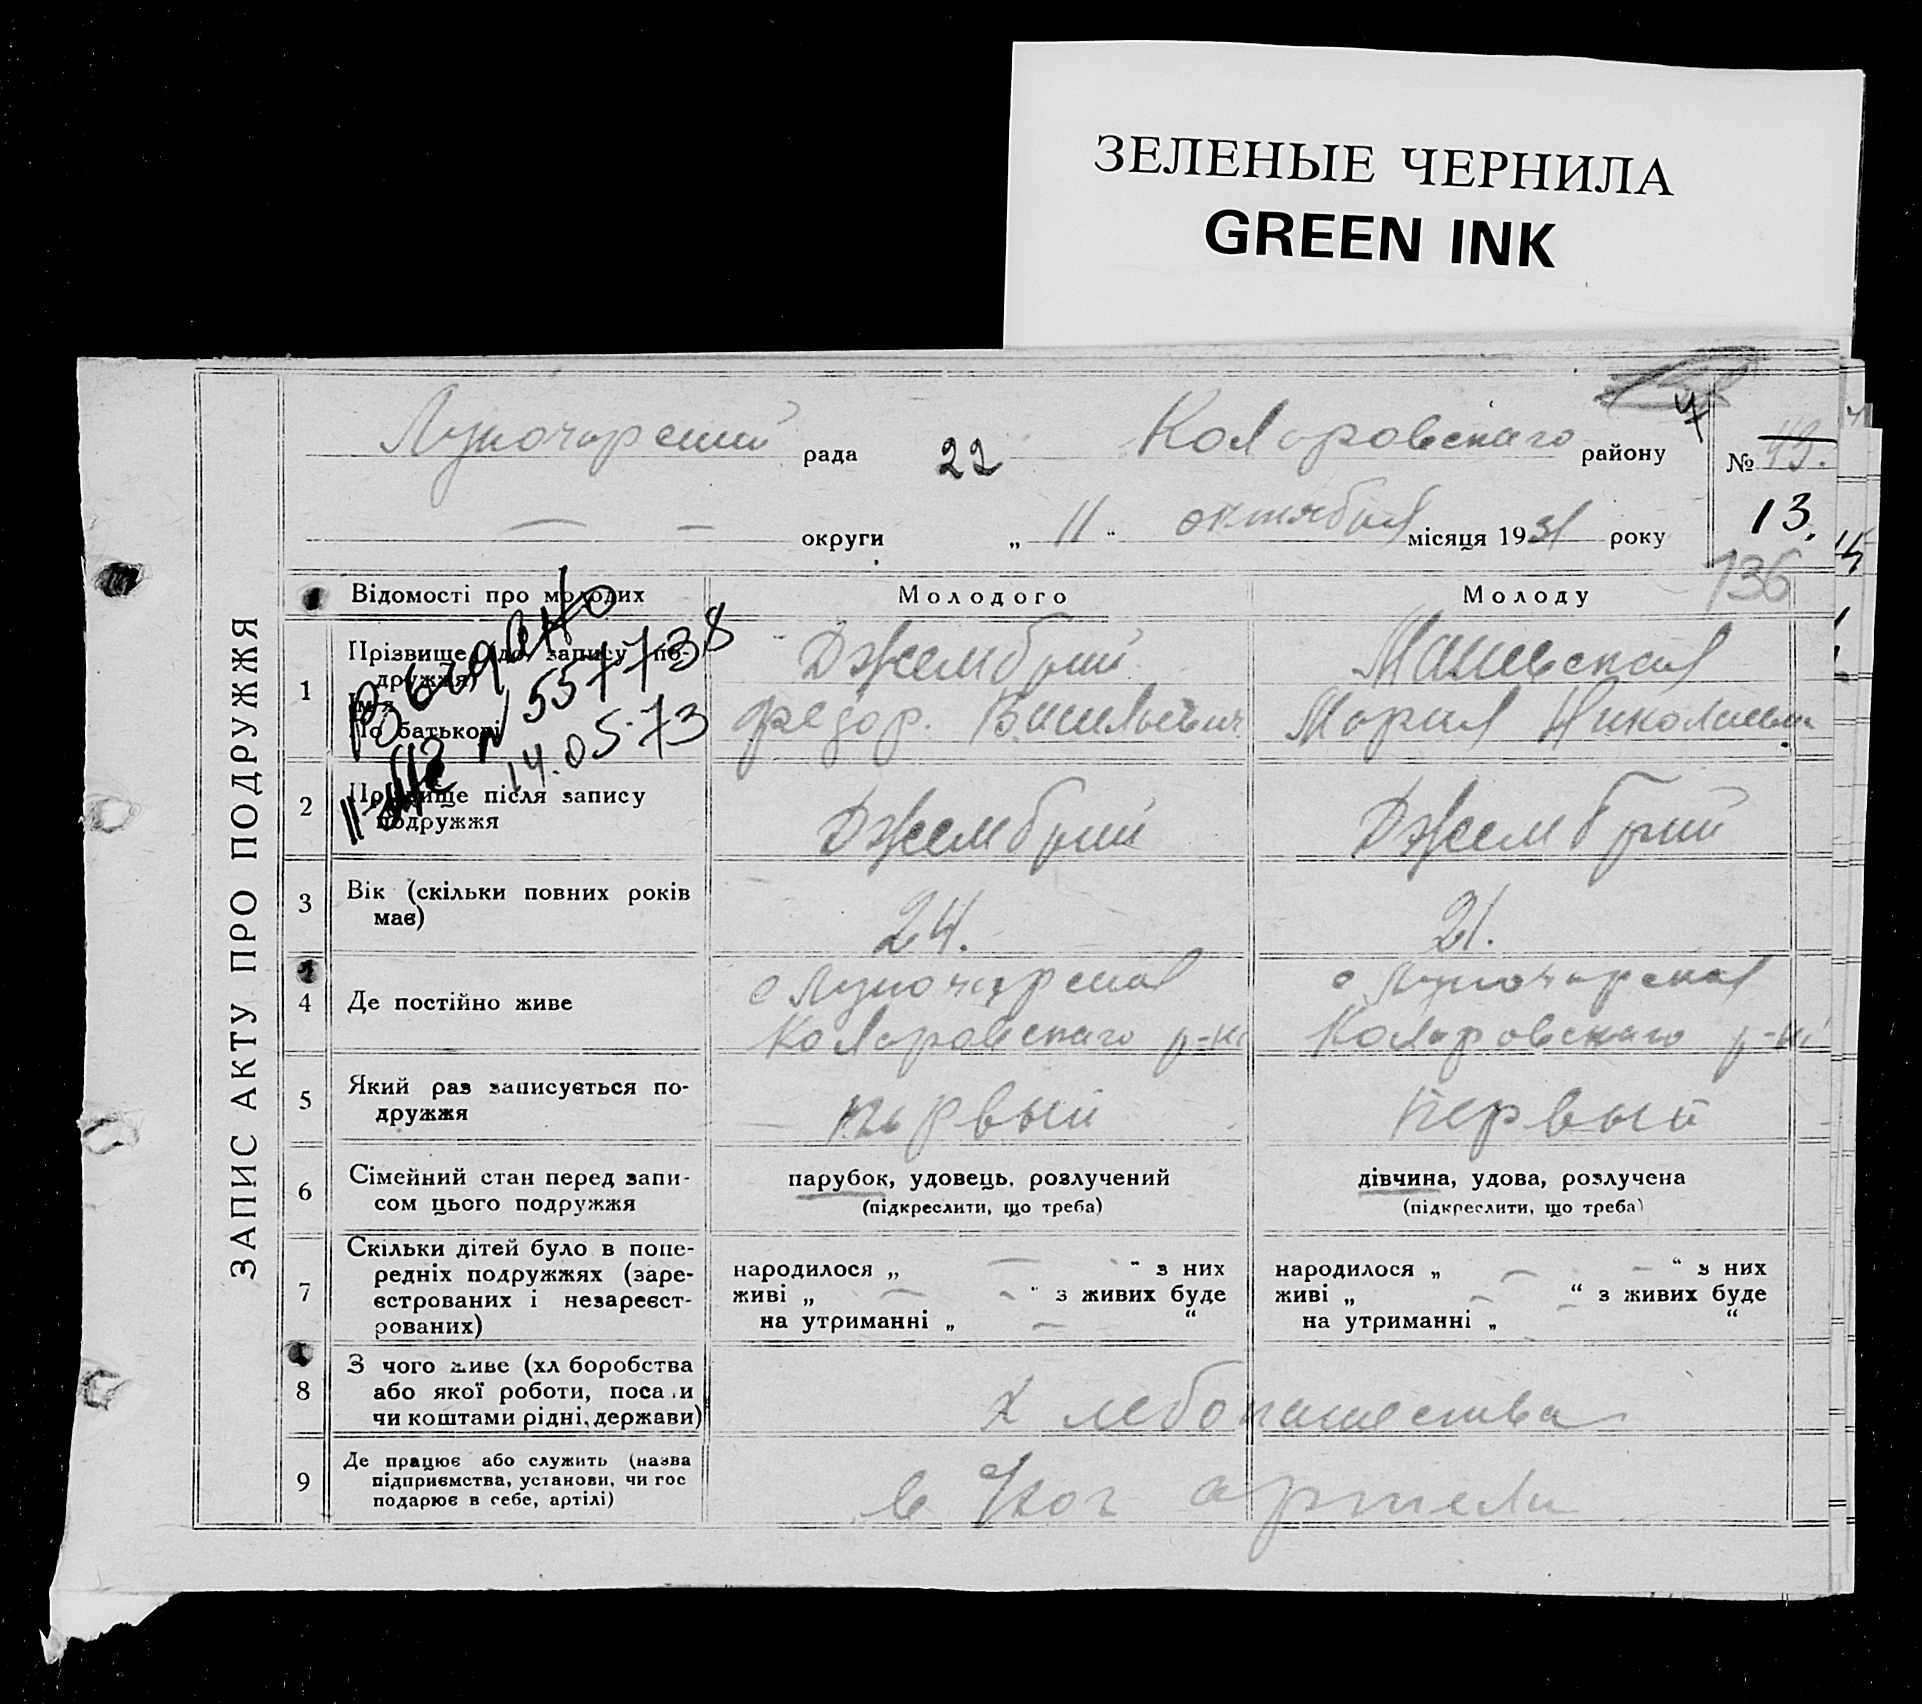 ЗЕЛЕНЫЕ ЧЕРНИЛА
GREEN INK
ЗАПИС АКТУ ПРО ПОДРУЖЖЯ
Луночарский рада 22 Коларовскаго району
№ 43.
округи „ 11 “ октября місяця 1931 року
13.
136
Відомості про молодих Молодого Молоду
Выдано
N 557738
14.05.73
1 Прізвище (до запису по-
дружжя)
Ім'я
По батькові
Джембрий
Федор. Васильевич
Машевская
Мария Николаевн
2 Прізвище після запису
подружжя
Джембрий Джембрий
3 Вік (скільки повних років
має)
24. 21.
4 Де постійно живе
с Луночарская
Коларовскаго р-на
с Луночарская
Коларовскаго р-на
5 Який раз записується по-
дружжя
первый первый
6 Сімейний стан перед запи-
сом цього подружжя
парубок, удовець, розлучений
(підкреслити, що треба)
дівчина, удова, розлучена
(підкреслити, що треба)
7 Скільки дітей було в попе-
редніх подружжях (заре-
єстрованих і незареєст-
рованих)
народилося „ — “ з них
живі „ — “ з живих буде
на утриманні „ — “
народилося „ — “ з них
живі „ — “ з живих буде
на утриманні „ “
8 З чого живе (хл боробства
або якої роботи, поса и
чи коштами рідні, держави)
Хлебопашества
9 Де працює або служить (назва
підприємства, установи, чи гос
подарює в себе, артілі)
в артели